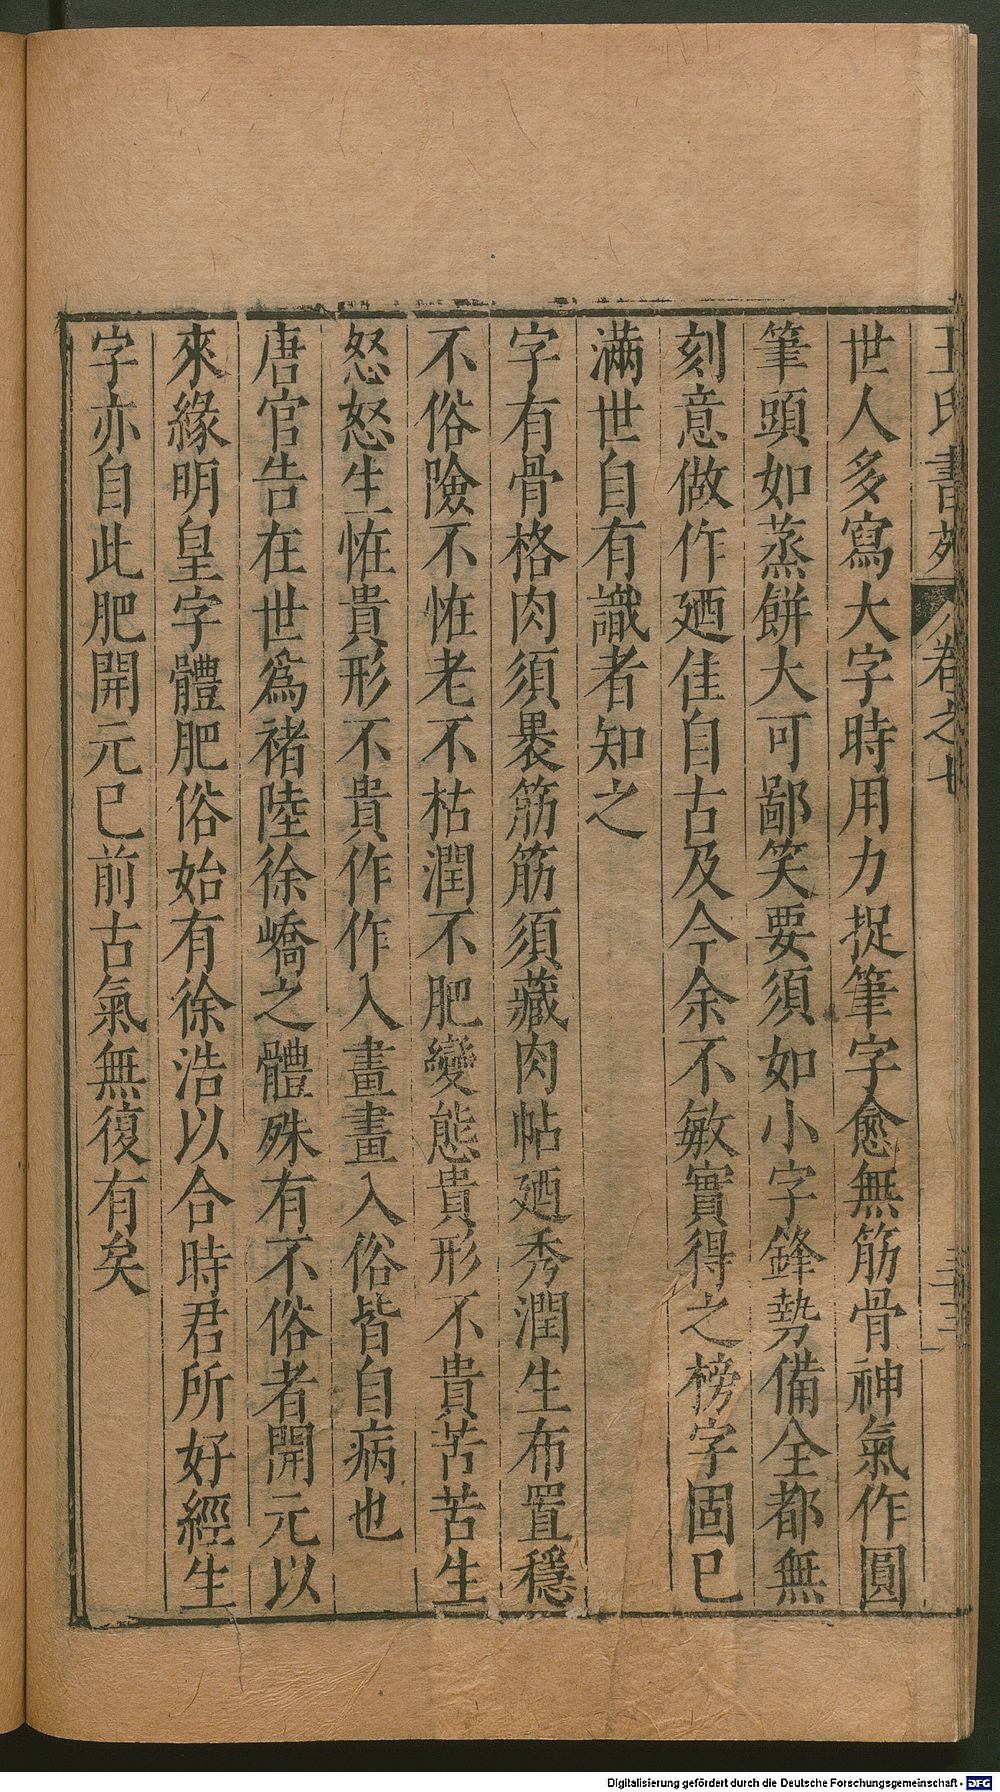 王氏書苑 卷之七
世人多寫大字時用力捉筆字愈無筋骨神氣作圓
筆頭如蒸餅大可鄙笑要須如小字鋒勢備全都無
刻意做作廼佳自古及今余不敏實得之榜字固已
滿世自有識者知之
字有骨格肉須褁筋筋須藏肉帖廼秀潤生布置穩
不俗險不恠老不枯潤不肥變態貴形不貴苦苦生
怒怒生恠貴形不貴作作入畫畫入俗皆自病也
唐官告在世爲褚陸徐嶠之體殊有不俗者開元以
來緣明皇字體肥俗始有徐浩以合時君所好經生
字亦自此肥開元已前古氣無復有矣
Digitalisierung gefördert durch die Deutsche Forschungsgemeinschaft - DFG